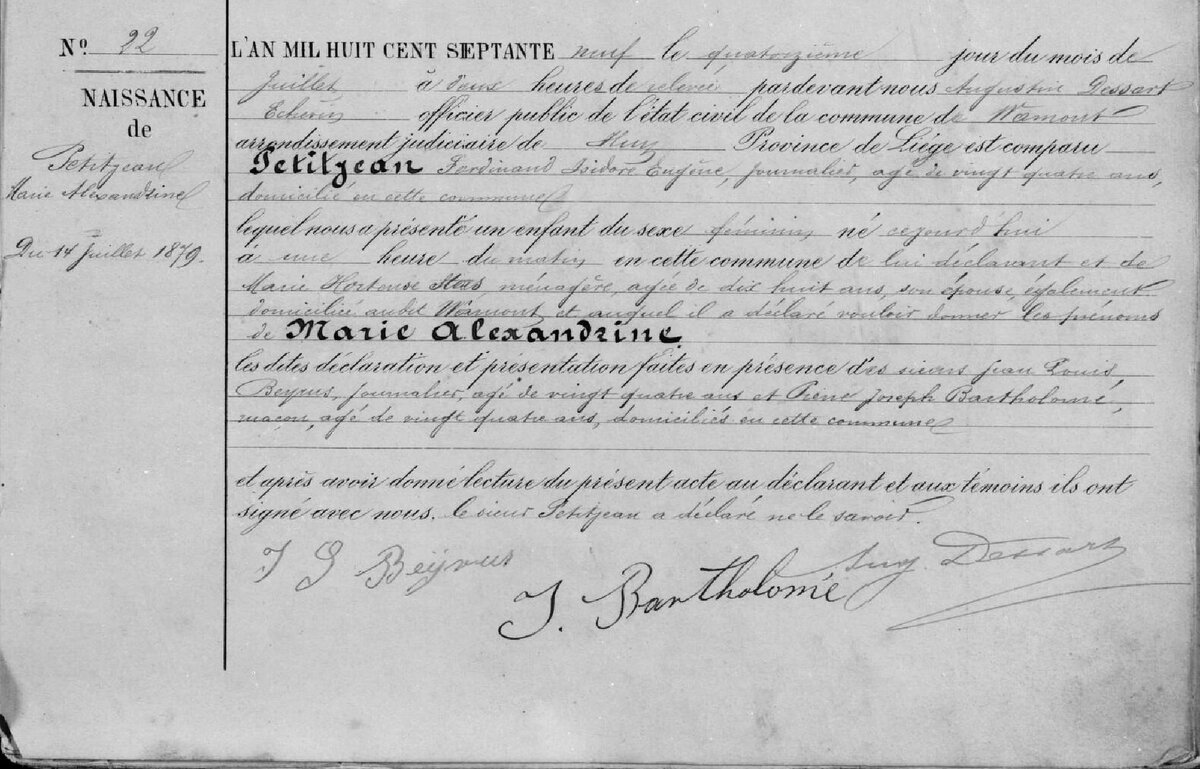 Nº 22
NAISSANCE
de
Petitjean
Marie Alexandrine
Du 14 Juillet 1879.
L'AN MIL HUIT CENT SEPTANTE neuf le quatorzième jour du mois de
Juillet à deux heures de relevée pardevant nous Augustin Dessart
Echevin officier public de l'état civil de la commune de Wamont
arrondissement judiciaire de Huy Province de Liége est comparu
Petitjean Ferdinand Isidore Eugène, journalier, agé de vingt quatre ans,
domicilié en cette commune
lequel nous a présenté un enfant du sexe féminin né cejourd'hui
à une heure du matin en cette commune de lui déclarant et de
Marie Hortense Stas, ménagère, agée de dix huit ans, son épouse, également
domiciliée audit Wamont, et auquel il a déclaré vouloir donner les prénoms
de Marie Alexandrine.
les dites déclaration et présentation faites en présence des sieurs Jean Louis
Beyrus, journalier, agé de vingt quatre ans et Joseph Bartholomé,
maçon, agé de vingt quatre ans, domiciliés en cette commune
et après avoir donné lecture du présent acte au déclarant et aux témoins ils ont
signé avec nous. le sieur Petitjean a déclaré ne le savoir.
J Beyrus
J. Bartholomé
Aug. Dessart